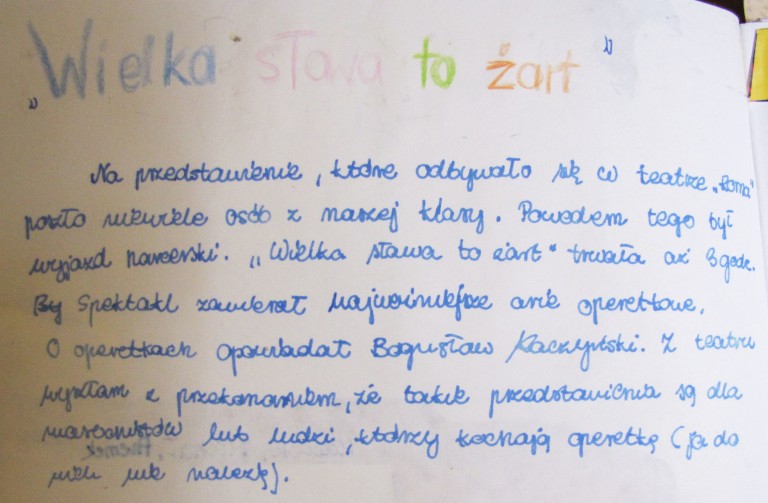 „Wielka sława to żart"
Na przedstawienie, które odbywało się w teatrze „Roma"
poszło niewiele osób z naszej klasy. Powodem tego był
wyjazd narciarski. „Wielka sława to żart" trwała aż 3 godz.
Spektakl zawierał najważniejsze arie operetkowe.
O operetkach opowiadał Bogusław Kaczyński. Z teatru
wyszłam z przekonaniem, że takie przedstawienia są dla
lub ludzi, którzy kochają operetkę (ja do
nich nie należę).